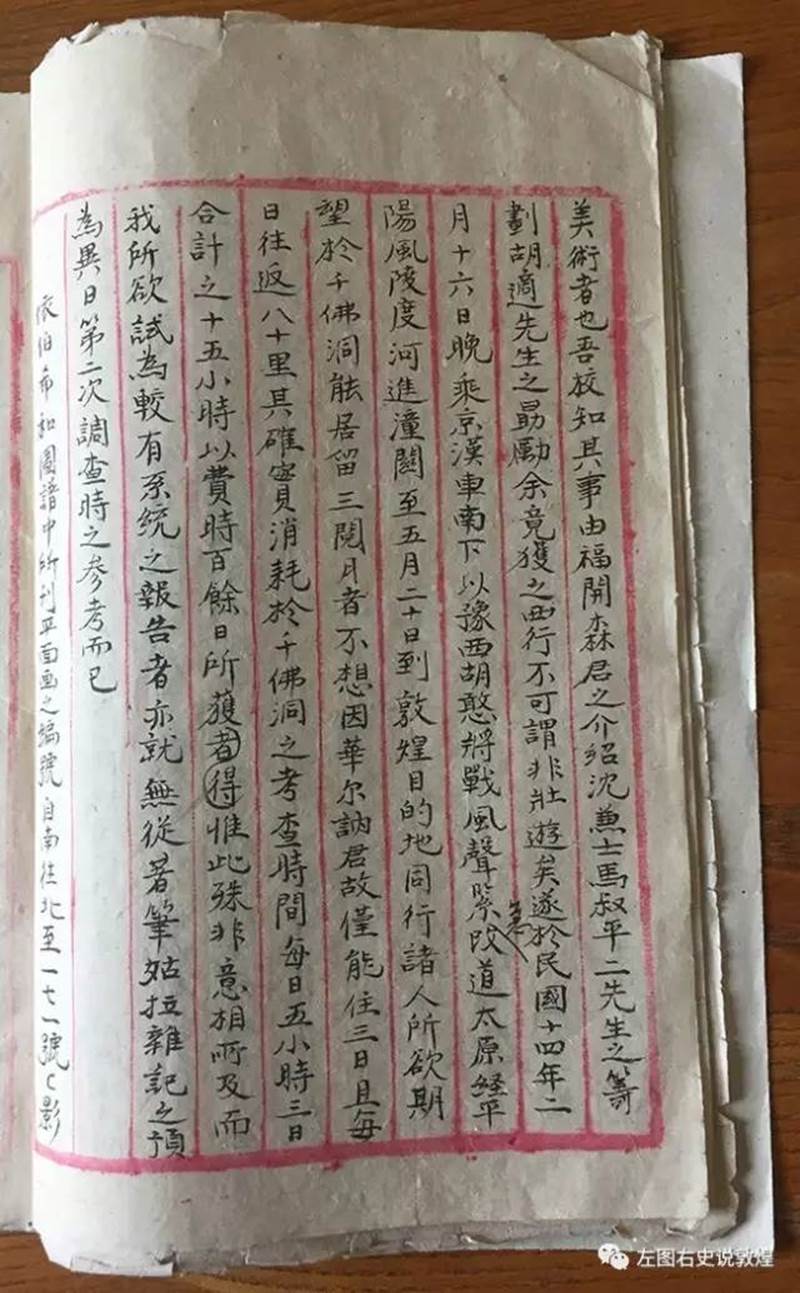 美術者也吾校知其事由福開森君之介紹沈兼士馬叔平二先生之籌
劃胡適先生之勗勵余竟獲之西行不可謂非壯遊矣遂於民國十四年二
月十六日晚乘京漢車南下以豫西胡憨將戰風聲緊急改道太原經平
陽風陵度河進潼關至五月二十日到敦煌目的地同行諸人所欲期
望於千佛洞能居留三閱月者不想因華尔訥君故僅能住三日且每
日往返八十里其確實消耗於千佛洞之考查時間每日五小時三日
合計之十五小時以費時百餘日所獲者得惟此殊非意相所及而
我所欲試為較有系統之報告者亦就無從著筆姑拉雜記之預
為異日第二次調查時之参考而已
依伯希和圖譜中所刊平面画之編號自南往北至一七一號C影
左图右史说敦煌